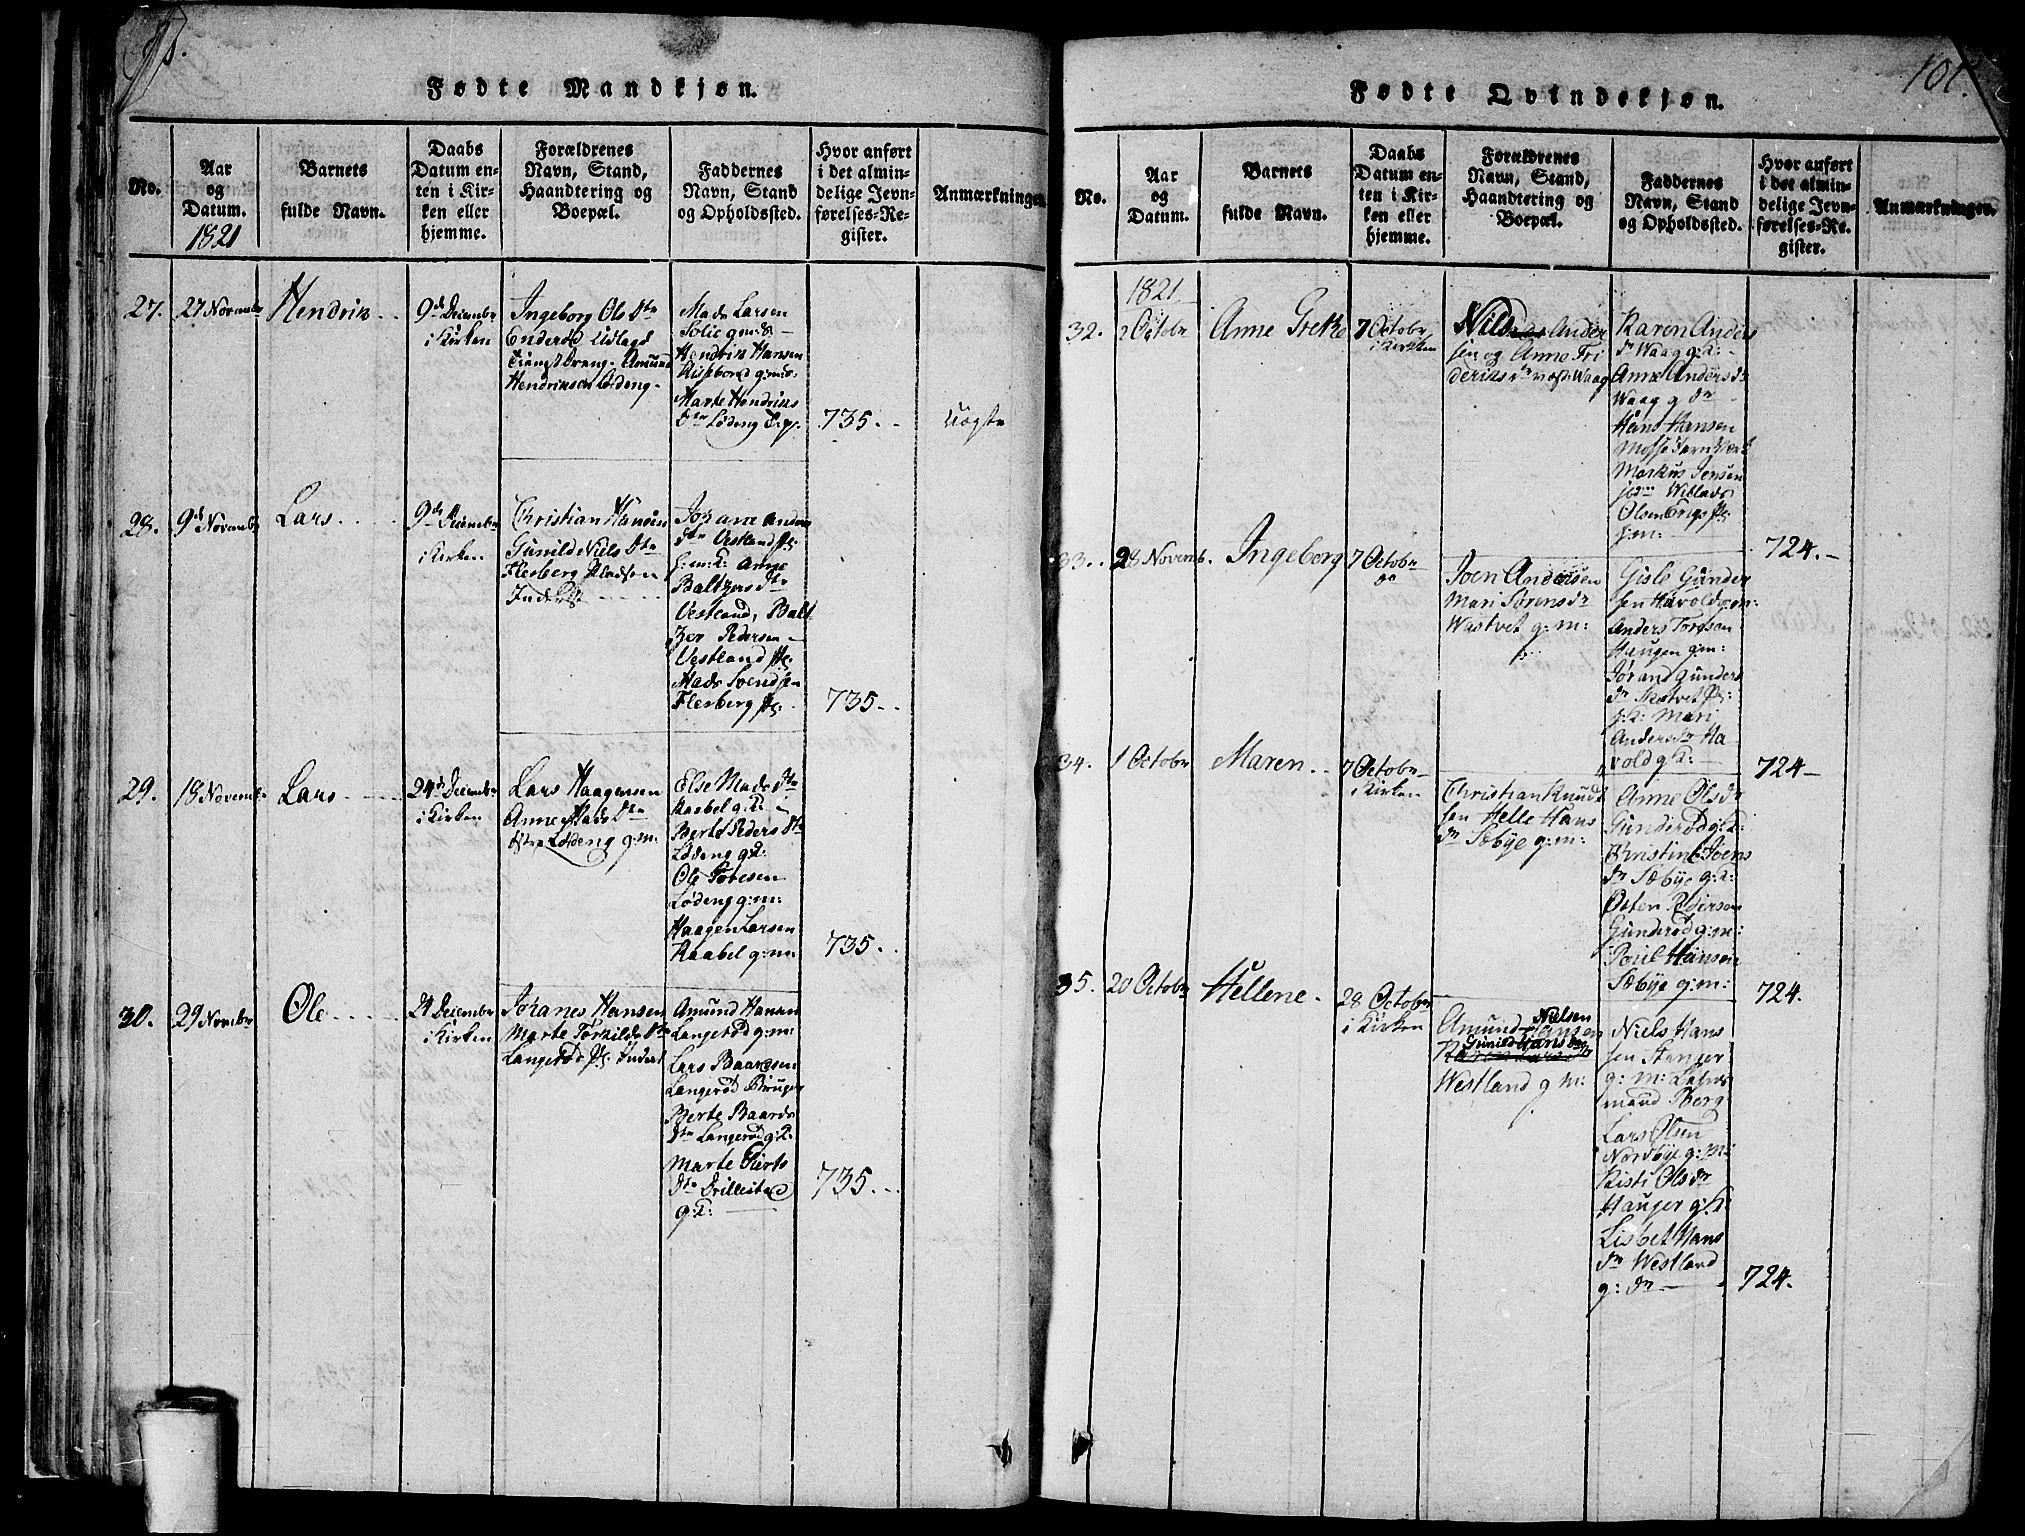 Fødte Mandkjøn.
No.
Aar
og
Datum.
1821
Barnets
fulde Navn.
Daabs
Datum en-
ten i Kir-
ken eller
hjemme.
Forældrenes
Navn, Stand,
Haandtering og
Boepæl.
Faddernes
Navn, Stand
og Opholdssted.
Hvor anført
i det almin-
delige Jevn-
førelses-Re-
gister.
Anmærkninger
27.
27 Novembr
Hendrik
9de Decembr
i Kirken
Ingeborg Ols Dtr
Enderød Udlagd
Amund
Hendriksen Lødeng
Mads Larsen
Solie g:m:
Hendrik Hansen
g:m:
Marte Hendriks
Dtr Lødeng
735.
28.
9de Novembr
Lars
9de Decembr
i Kirken
Christian Hansen
Gunild Niels Dtr
Flesberg Pladsen
Johane Anders
Dtr Vestland
g:m:K: Anne
Baltzers Dtr
Vestland, Balt
zer Pedersen
Vestland
Mads Svendsen
Flesberg
735.
29.
18 Novembr
Lars
24de Decembr
i Kirken
Lars Haagensen
Anne Mads Dtr
Østre Lødeng g:m:
Else Mads Dtr
Raabel g:K:
Berte Peders Dtr
Lødeng g:K:
Ole Tovesen
Lødeng g:m:
Haagen Larsen
Raabel g:m:
735.
30.
29 Novembr
Ole
24 Decembr
i Kirken
Johanes Hansen
Marte Torkilds Dtr
Langerød
Amund Hansen
Langerød g:m:
Lars Baardsen
Langerød Bruger
Berte Baards
Dtr Langerød g:K:
Marte Siurts
Dtr Drillestad
g:K:
735.
101.
Fødte Qvindekjøn.
No.
Aar
og
Datum.
Barnets
fulde Navn.
Daabs
Datum en-
ten i Kir-
ken eller
hjemme.
Forældrenes
Navn, Stand,
Haandtering og
Boepæl.
Faddernes
Navn, Stand
og Opholdssted.
Hvor anført
i det almin-
delige Jevn-
førelses-Re-
gister.
Anmærkninger.
1821
32.
2 Octobr
Anne Grethe
7 Octobr
i Kirken
Ander
sen og Anne Fri
deriks Dr Waag
Karen Anders
Dr Waag g:K:
Anne Anders Dr
Waag g Dr
Hans Hansen
Mosse Jernværk
Markus Jensen
Willads
Olsen
g:m:
724.
33.
28 Novemb.
Ingeborg
7 Octobr
Joen Andersen
Mari Sørens Dr
Wastvet g:m:
Gisle Gunder
sen Havold g:m:
Anders Torgsen
Haugen g:m:
Jørand Gunders
Dr
g:K: Mari
Anders Dr Ha
vold g:K:
724
34.
1 Octobr
Maren
7 Octobr
i Kirken
Christian Knudt
sen Helle Hans
Dr Sæbye g:m:
Anne Ols Dr
Gunderød g:K:
Christine Joens
Dr Sæbye g:K:
Østen Pedersen
Gunderød g:m:
Poul Hansen
Sæbye g:m:
724.
35.
20 Octobr
Hellene
28 Octobr
i Kirken
Nielsen
Amund Hansen
Gunild Hans Dr
Westland g m:
Niels Hans
sen Stanger
g: m:
mand Berg
Lars Olsen
Nordbye g:m:
Kisti Ols Dr
Hauger g:K:
Lisbet Hans
Dr Westland
g: Dr
724.